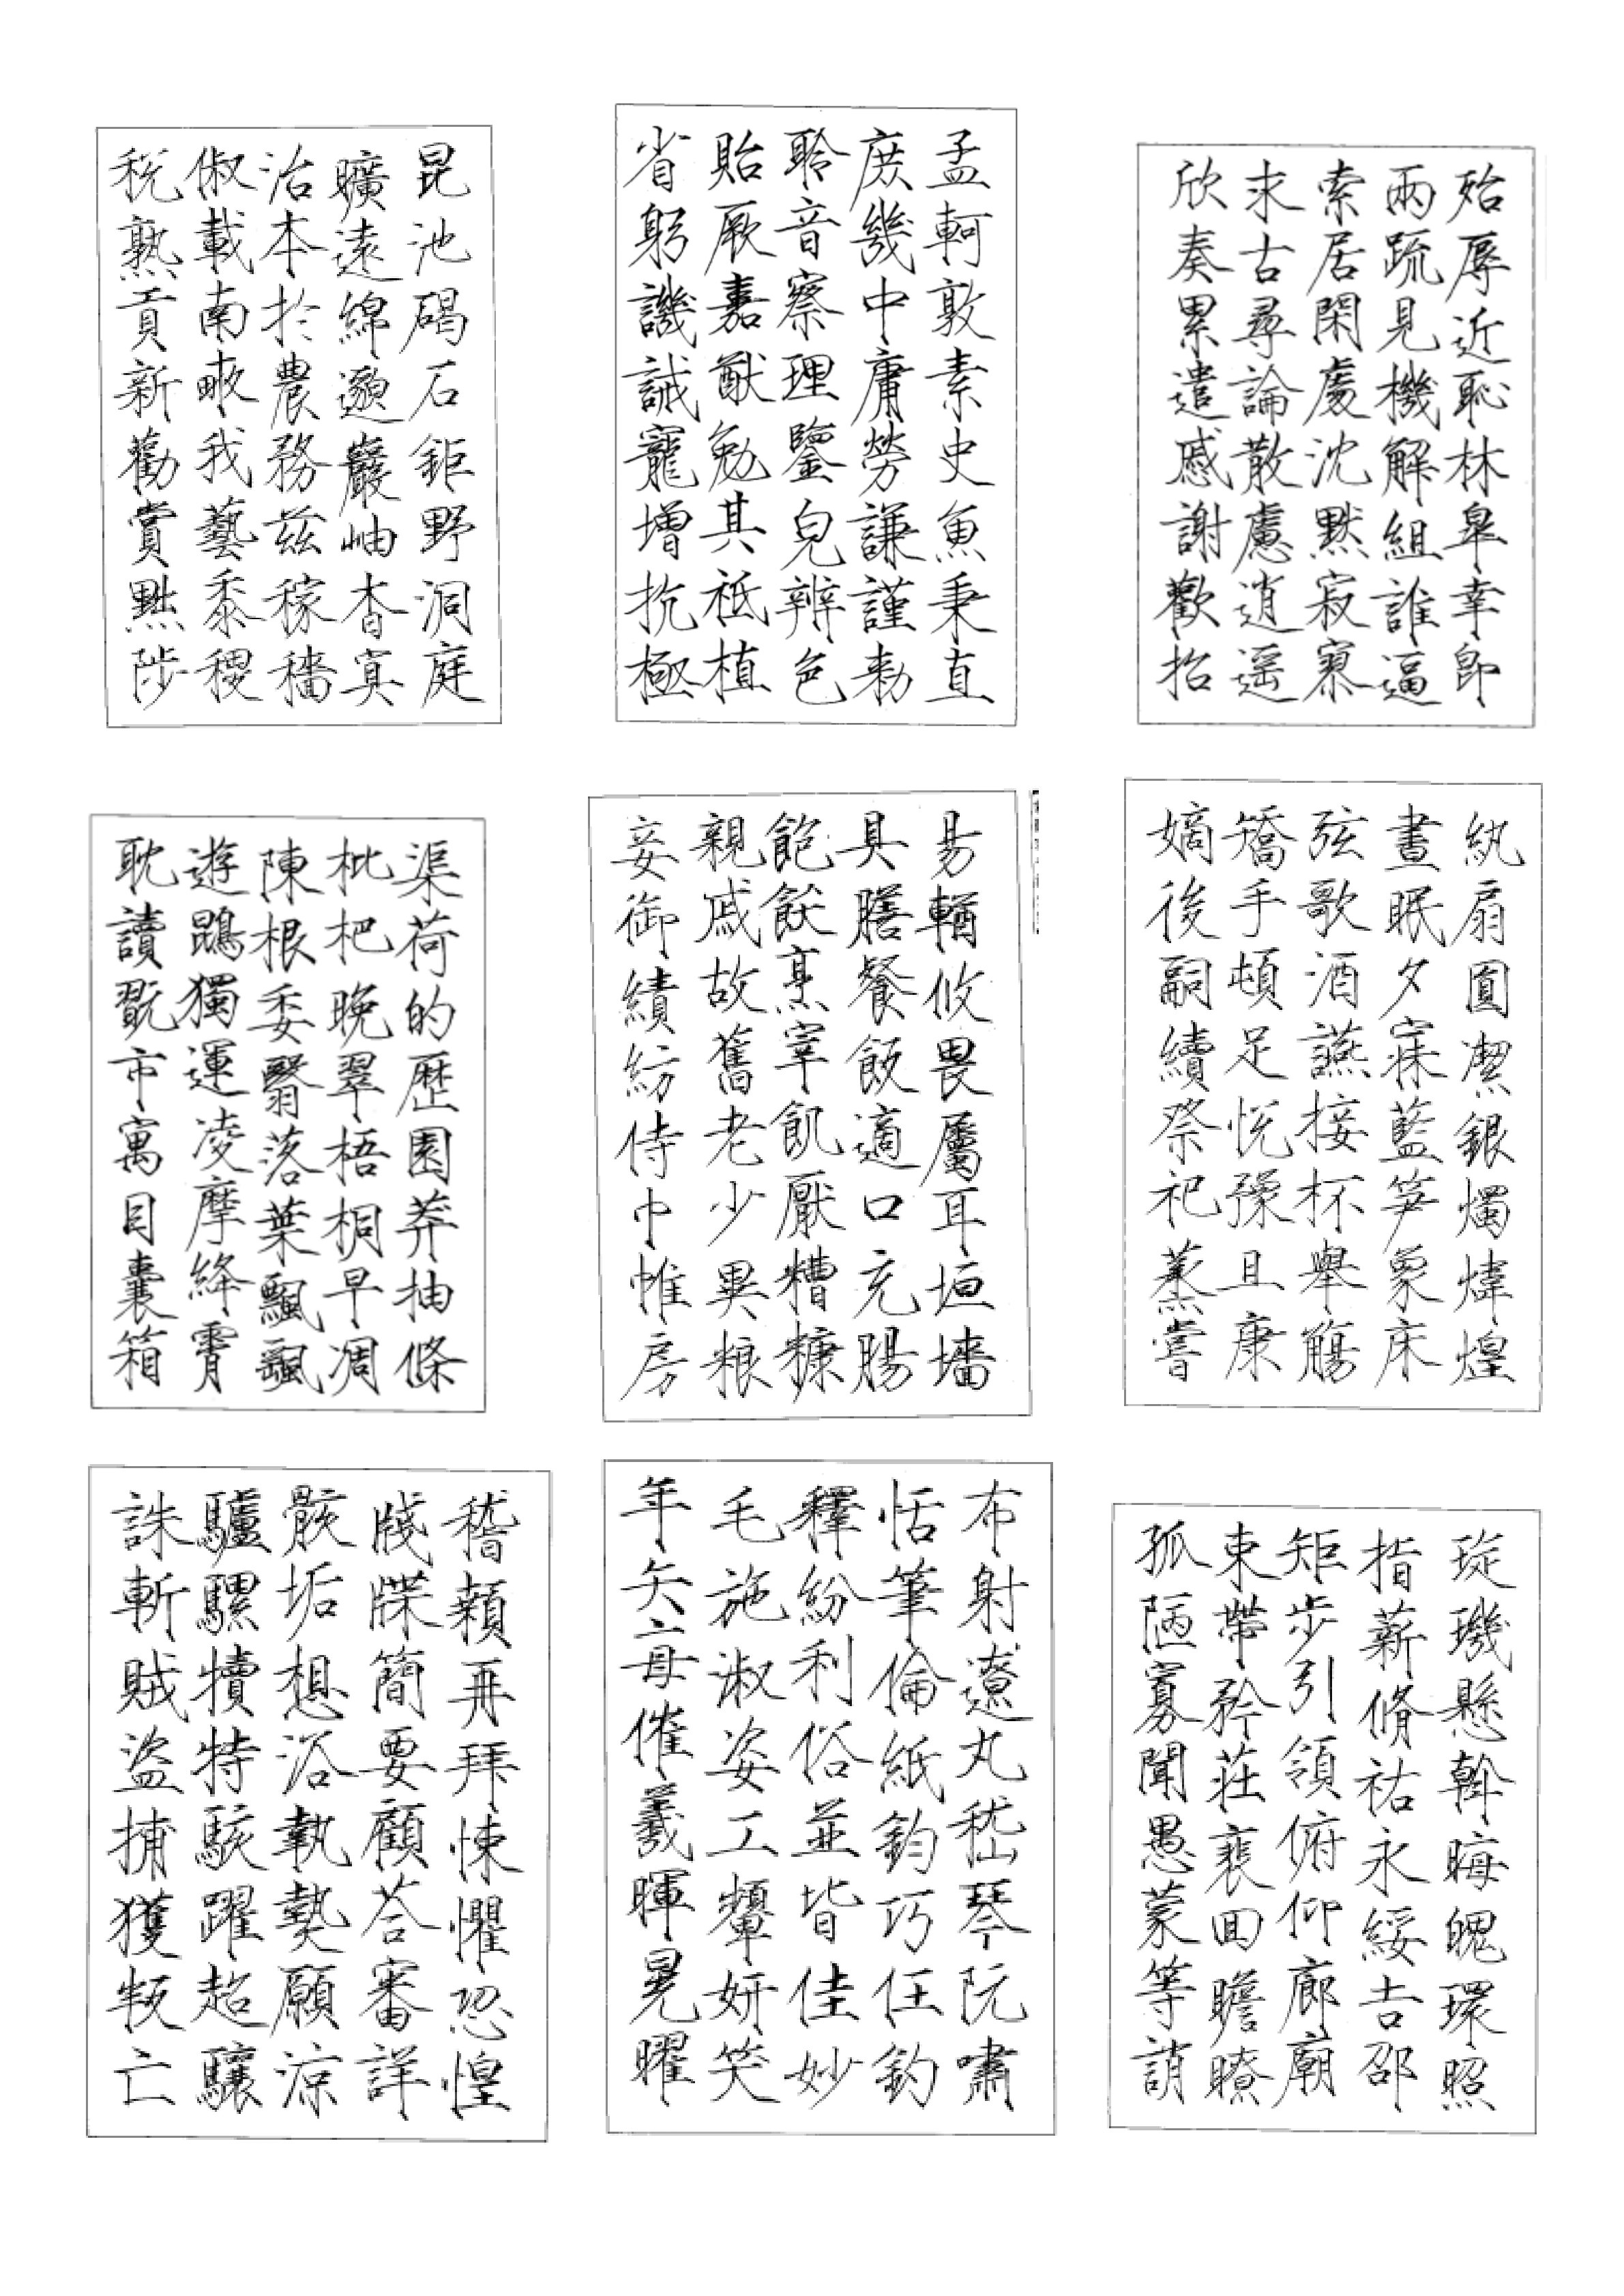 昆池碣石鉅野洞庭
曠遠綿邈巖岫杳冥
治本於農務茲稼穡
俶載南畝我藝黍稷
稅熟貢新勸賞黜陟
孟軻敦素史魚秉直
庶幾中庸勞謙謹勑
聆音察理鑒皃辨色
貽厥嘉猷勉其祗植
省躬譏誡寵增抗極
殆辱近恥林皋幸即
兩疏見機解組誰逼
索居閑處沈默寂寥
求古尋論散慮逍遙
欣奏累遣慼謝歡招
渠荷的歷園莽抽條
枇杷晚翠梧桐早凋
陳根委翳落葉飄颻
遊鵾獨運凌摩絳霄
耽讀翫市寓目囊箱
易輶攸畏屬耳垣墻
具膳餐飯適口充腸
飽飫烹宰飢厭糟糠
親戚故舊老少異粮
妾御績紡侍巾帷房
紈扇圓潔銀燭煒煌
晝眠夕寐藍笋象床
弦歌酒讌接杯舉觴
矯手頓足悅豫且康
嫡後嗣續祭祀蒸嘗
稽顙再拜悚懼恐惶
牋牒簡要顧荅審詳
骸垢想浴執熱願涼
驢騾犢特駭躍超驤
誅斬賊盜捕獲叛亡
布射遼丸嵇琴阮嘯
恬筆倫紙鈞巧任釣
釋紛利俗並皆佳妙
毛施淑姿工顰妍笑
年矢每催羲暉晃曜
琁璣懸斡晦魄環照
指薪脩祜永綏吉邵
矩步引領俯仰廊廟
束帶矜莊裴回瞻瞭
孤陋寡聞愚蒙等誚